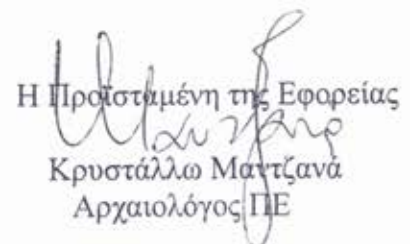 Η Προϊσταμένη της Εφορείας
Κρυστάλλω Μαντζανά
Αρχαιολόγος ΠΕ